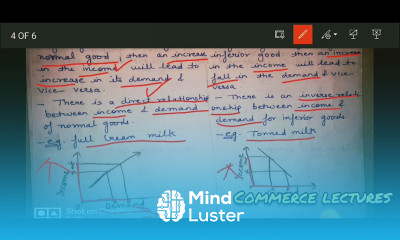 4 OF 6
normal good, then an increase
in the income will lead to
increase in its demand &
vice-versa.
- There is a direct relationship
between income & demand
of normal goods.
- Eg. full cream milk
inferior good then an increase
in the income will lead to
fall in the demand & vice
versa
- There is an inverse relati-
onship between income &
demand for inferior goods.
- Eg. Tonned milk
Income
Demand
Income
Shot on
Mind
Luster
COMMERCE LECTURES